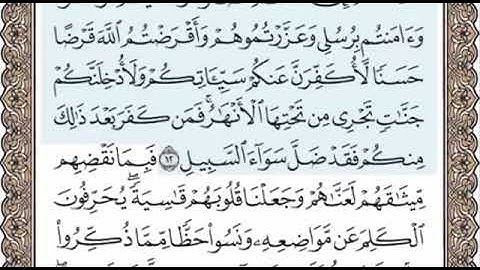 وَءَامَنتُم بِرُسُلِي وَعَزَّرْتُمُوهُمْ وَأَقْرَضْتُمُ ٱللَّهَ قَرْضًا
حَسَنًا لَّأُكَفِّرَنَّ عَنكُمْ سَيِّـَٔاتِكُمْ وَلَأُدْخِلَنَّكُمْ
جَنَّٰتٍ تَجْرِى مِن تَحْتِهَا ٱلْأَنْهَٰرُ ۚ فَمَن كَفَرَ بَعْدَ ذَٰلِكَ
مِنكُمْ فَقَدْ ضَلَّ سَوَآءَ ٱلسَّبِيلِ ١٢ فَبِمَا نَقْضِهِم
مِّيثَٰقَهُمْ لَعَنَّٰهُمْ وَجَعَلْنَا قُلُوبَهُمْ قَٰسِيَةً ۖ يُحَرِّفُونَ
ٱلْكَلِمَ عَن مَّوَاضِعِهِۦ ۙ وَنَسُوا۟ حَظًّا مِّمَّا ذُكِّرُوا۟